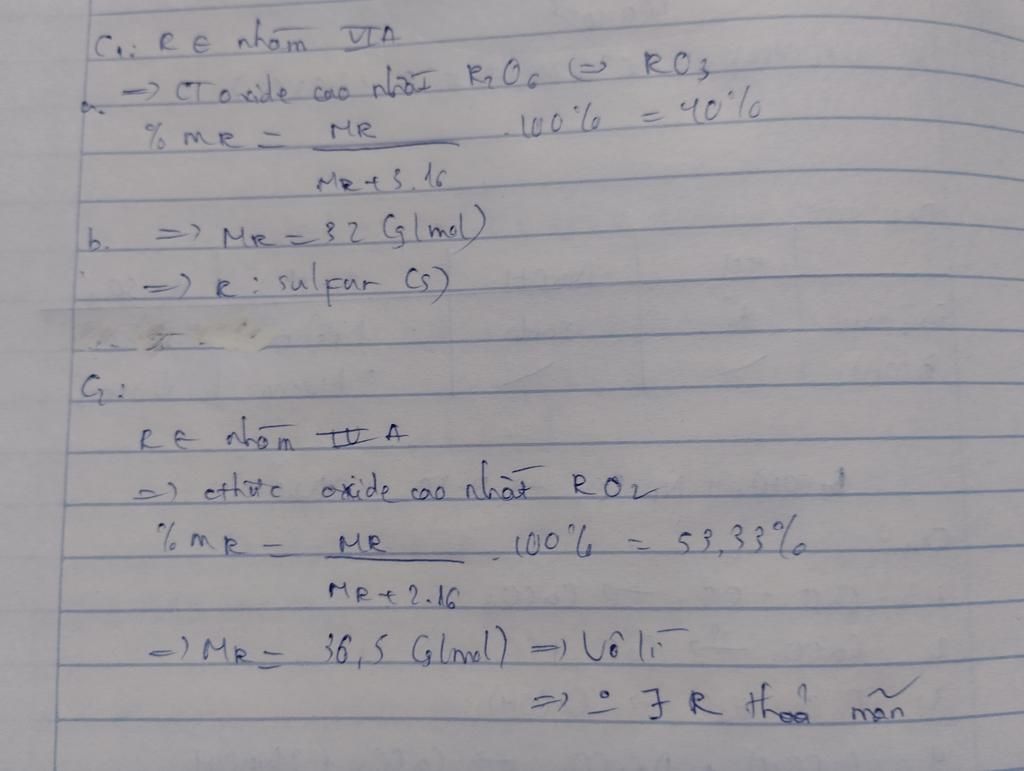 C₁: R ∈ nhóm VIA
a. => CT oxide cao nhất R₂O₆ <=> RO₃
% mR = MR / MR + 3.16 . 100% = 40%
b. => MR = 32 (g/mol)
=> R : sulfur (S)
C₂:
R ∈ nhóm IV A
=> cthức oxide cao nhất RO₂
% mR = MR / MR + 2.16 . 100% = 53,33%
=> MR = 36,5 (g/mol) => Vô lí
=> ∃ R thoả mãn